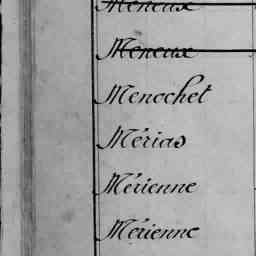 Meneux
Meneux
Menochet
Mérias
Mérienne
Mérienne